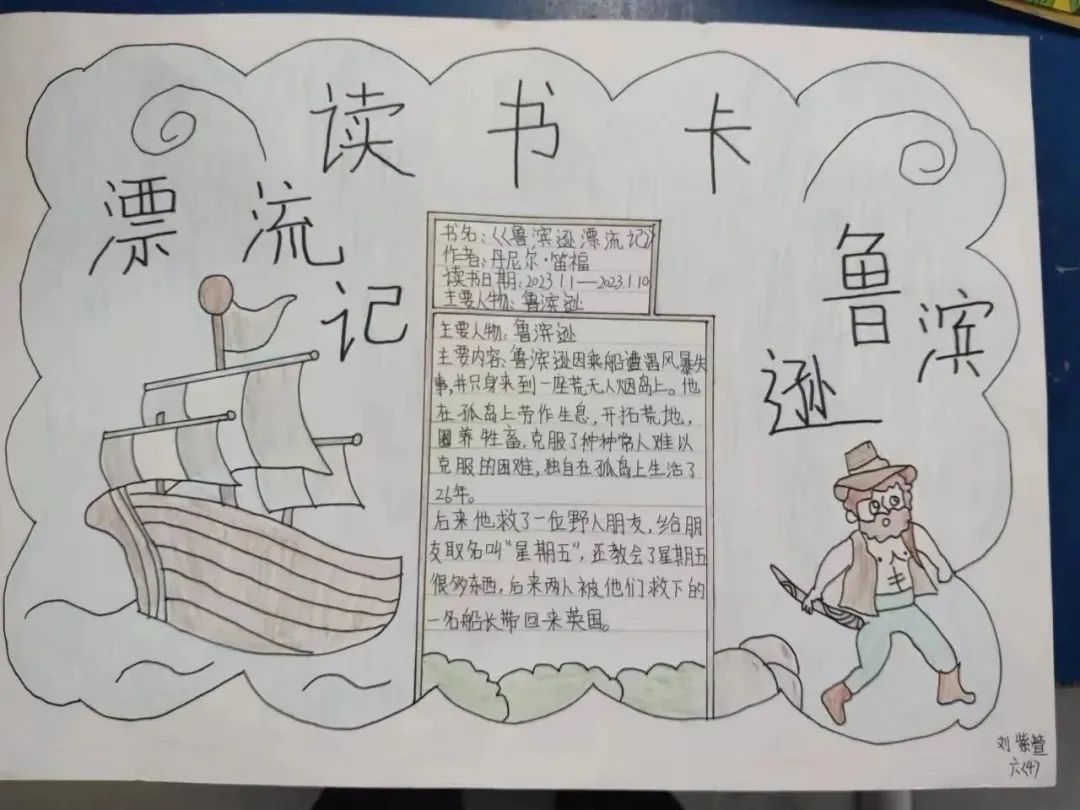 读书卡
漂流
记
鲁
滨
逊
书名:《鲁滨逊漂流记》
作者:丹尼尔·笛福
读书日期:2023.1.1—2023.1.10
主要人物:鲁滨逊
主要人物:鲁滨逊
主要内容:鲁滨逊因乘船遭遇风暴失
事,并只身来到一座荒无人烟岛上。他
在孤岛上劳作生息,开拓荒地,
圈养牲畜,克服了种种常人难以
克服的困难,独自在孤岛上生活了
26年。
后来他救了一位野人朋友,给朋
友取名叫"星期五",还教会了星期五
很多东西,后来两人被他们救下的
一名船长带回来英国。
刘紫萱
六(4)